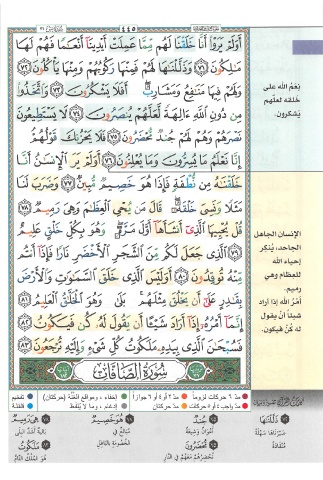 ٤٤٥
أَوَلَمْ يَرَوْا۟ أَنَّا خَلَقْنَا لَهُم مِّمَّا عَمِلَتْ أَيْدِينَآ أَنْعَٰمًا فَهُمْ لَهَا
مَٰلِكُونَ ٧١ وَذَلَّلْنَٰهَا لَهُمْ فَمِنْهَا رَكُوبُهُمْ وَمِنْهَا يَأْكُلُونَ ٧٢
وَلَهُمْ فِيهَا مَنَٰفِعُ وَمَشَارِبُ أَفَلَا يَشْكُرُونَ ٧٣ وَٱتَّخَذُوا۟
مِن دُونِ ٱللَّهِ ءَالِهَةً لَّعَلَّهُمْ يُنصَرُونَ ٧٤ لَا يَسْتَطِيعُونَ
نَصْرَهُمْ وَهُمْ لَهُمْ جُندٌ مُّحْضَرُونَ ٧٥ فَلَا يَحْزُنكَ قَوْلُهُمْ
إِنَّا نَعْلَمُ مَا يُسِرُّونَ وَمَا يُعْلِنُونَ ٧٦ أَوَلَمْ يَرَ ٱلْإِنسَٰنُ أَنَّا
خَلَقْنَٰهُ مِن نُّطْفَةٍ فَإِذَا هُوَ خَصِيمٌ مُّبِينٌ ٧٧ وَضَرَبَ لَنَا
مَثَلًا وَنَسِىَ خَلْقَهُۥ قَالَ مَن يُحْىِ ٱلْعِظَٰمَ وَهِىَ رَمِيمٌ ٧٨
قُلْ يُحْيِيهَا ٱلَّذِىٓ أَنشَأَهَآ أَوَّلَ مَرَّةٍ وَهُوَ بِكُلِّ خَلْقٍ عَلِيمٌ
٧٩ ٱلَّذِى جَعَلَ لَكُم مِّنَ ٱلشَّجَرِ ٱلْأَخْضَرِ نَارًا فَإِذَآ أَنتُم
مِّنْهُ تُوقِدُونَ ٨٠ أَوَلَيْسَ ٱلَّذِى خَلَقَ ٱلسَّمَٰوَٰتِ وَٱلْأَرْضَ
بِقَٰدِرٍ عَلَىٰٓ أَن يَخْلُقَ مِثْلَهُم بَلَىٰ وَهُوَ ٱلْخَلَّٰقُ ٱلْعَلِيمُ ٨١
إِنَّمَآ أَمْرُهُۥٓ إِذَآ أَرَادَ شَيْـًٔا أَن يَقُولَ لَهُۥ كُن فَيَكُونُ ٨٢
فَسُبْحَٰنَ ٱلَّذِى بِيَدِهِۦ مَلَكُوتُ كُلِّ شَىْءٍ وَإِلَيْهِ تُرْجَعُونَ ٨٣
سُورَةُ الصَّافَّاتِ
نِعَمُ الله على
خلقه لعلّهم
يشكرون.
الإنسان الجاهل
الجاحد، يُنكر
إحياء الله
للعظام وهي
رميم.
أمْرُ الله إذا أراد
شيئاً أنْ يقول
له كُنْ فيكون.
مدّ ٦ حركات لزوماً
مدّ ٢ أو ٤ أو ٦ جوازاً
إخفاء، ومواقع الغُنّة (حركتان)
تفخيم
مدّ واجب ٤ أو ٥ حركات
مدّ حركتان
إدغام، وما لا يُلفظ
قلقلة
ذَلَّلْنَاهَا
جُندٌ
هُوَ خَصِيمٌ
هِيَ رَمِيمٌ
مُحْضَرُونَ
مَلَكُوتُ